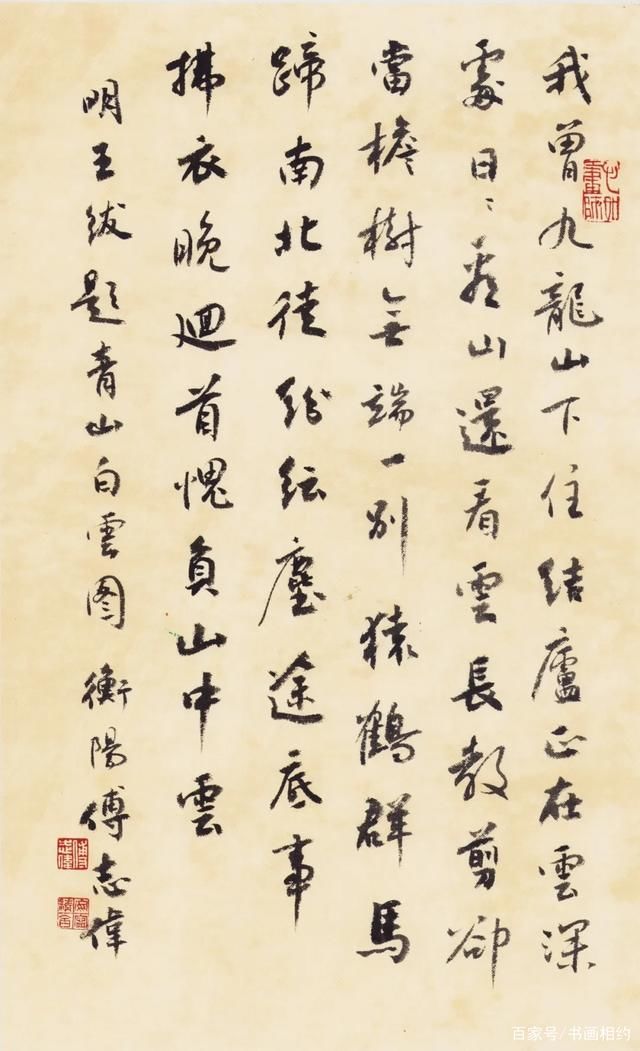 我曾九龍山下住結廬正在雲深
處日〻看山還看雲長教剪卻
當檐樹無端一別猿鶴群馬
蹄南北徒紛紜塵途底事
拂衣晚迴首愧負山中雲
明王紱題青山白雲图 衡陽傅志偉
百家号/书画相约